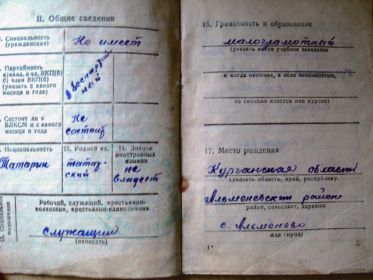 II. Общие сведения
Специальность
(гражданская)
Не имеет
Партийность
ВКП(б)
б) член ВКП(б)
(указать с какого
месяца и года)
беспартийный
Состоит ли в
ВЛКСМ и с какого
месяца и года
Не
состоит
Национальность
Татарин
13. Родной яз.
татарский
14. Знание
иностранных
языков
не
владеет
Рабочий, служащий, крестьянин-
колхозник, крестьянин-единоличник
служащий
(написать)
16. Грамотность и образование
малограмотный
(указать какое учебное заведение
и когда окончил, а если неполностью,
то сколько классов или курсов)
17. Место рождения
Курганская область
(указать область, край, республику,
Альменевский район
район, сельсовет, деревня
с. Альменево
или город)